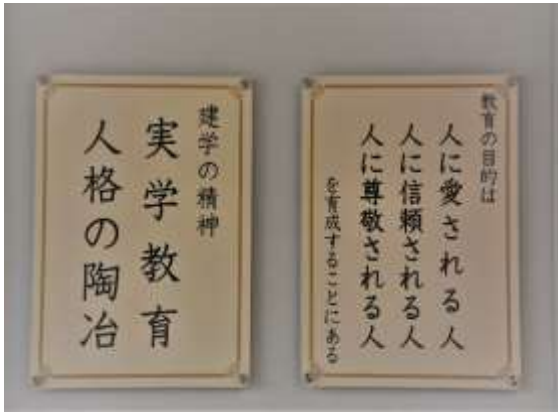 教育の目的は
人に愛される人
人に信頼される人
人に尊敬される人
を育成することにある
建学の精神
実学教育
人格の陶冶